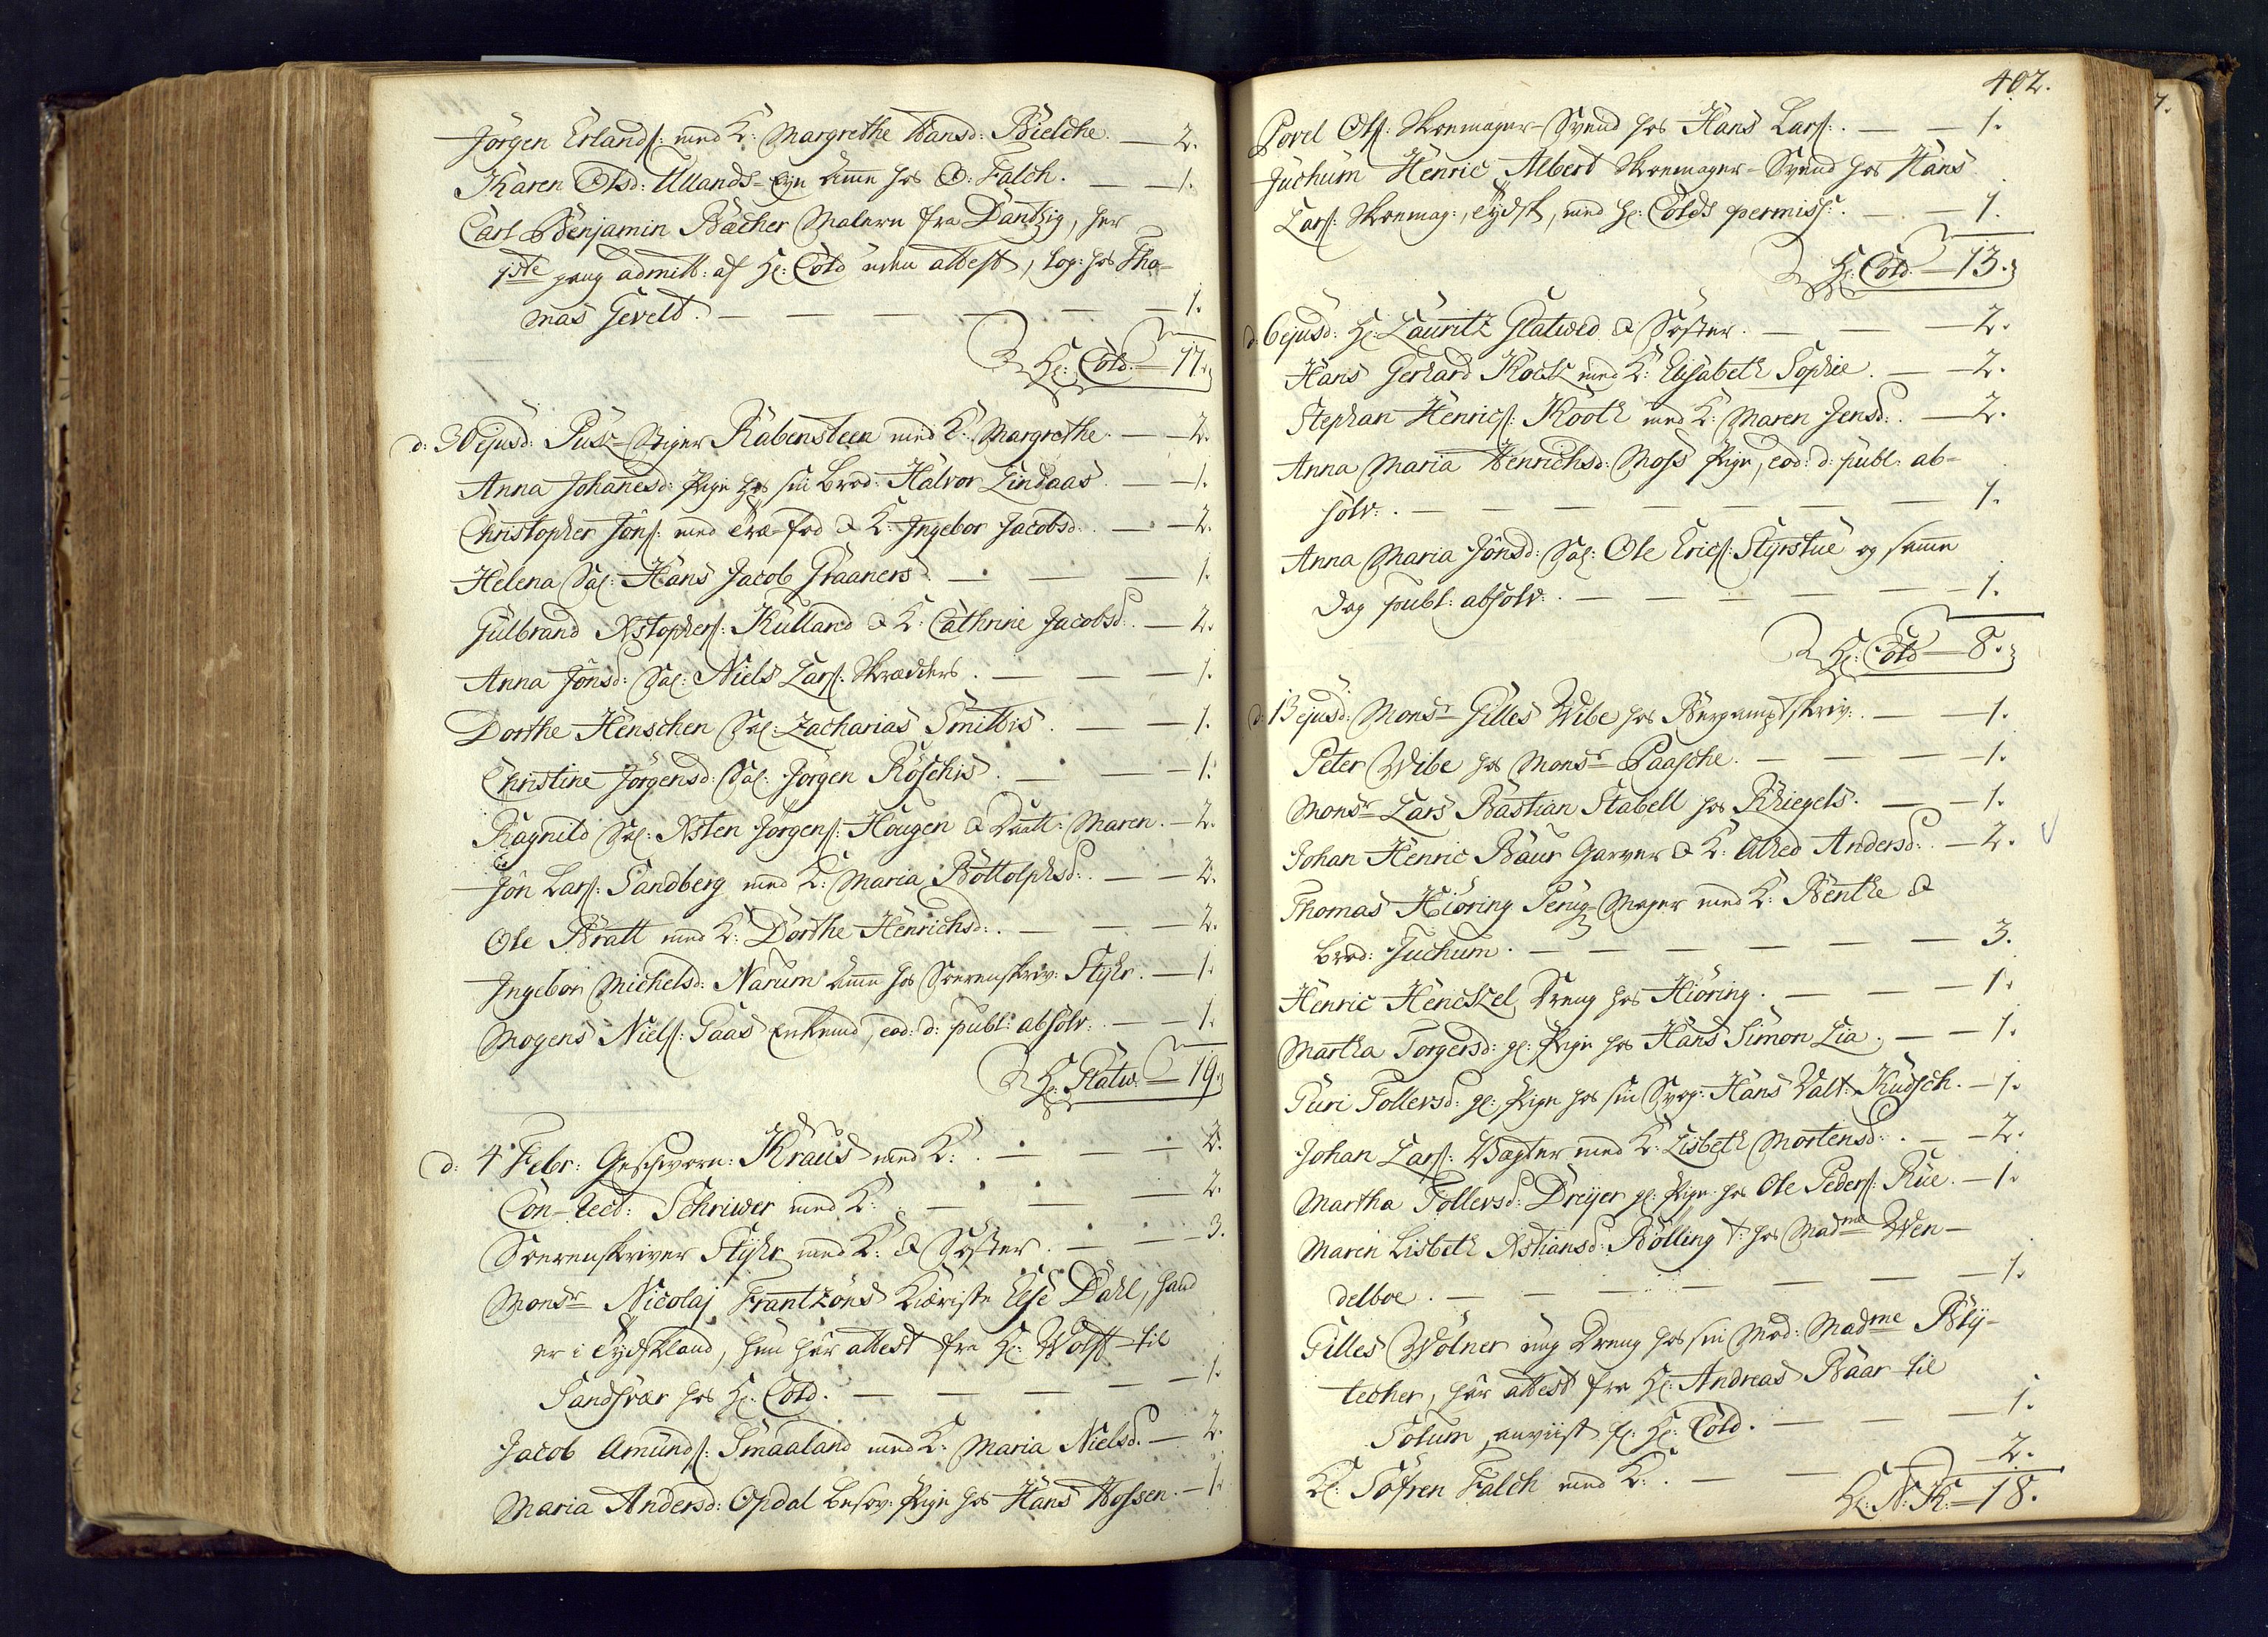 Jörgen Erlandſ: med K: Margrethe Hansd: Bielche. — 2.
Karen Olsd: Ullands-Eye Amme hos O: Falch. — — 1.
Carl Benjamin Bacher Malern fra Dantzig, her
1ste gang admitt: af Hr: Cold uden attest, log: hos Tho-
mas Gevelt. — — — — — — 1.
Hr: Cold. — 17.
d: 30 ejusd: Puk-Stiger Rabensteen med K: Margrethe. — 2.
Anna Johanesd: Pige hos sin Brod: Halvor Lindaas. — 1.
Christopher Jönſ: med Træ-fod & K: Ingebor Jacobsd: — 2.
Helena Sal: Hans Jacob Graaners. — — — 1.
Gulbrand Xstopherſ: Kulland & K: Cathrine Jacobsd: — 2.
Anna Jönsd: Sal: Niels Larſ: Skrædders. — — — 1.
Dorthe Henschen Sal: Zacharias Smittis. — — 1.
Christine Jörgensd: Sal: Jörgen Röschis. — — — 1.
Ragnild Sal: Xsten Jörgenſ: Hougen & Datt: Maren. — 2.
Jön Larſ: Sandberg med K: Maria Bottolphsd: — — 2.
Ole Bratt med K: Dorthe Henrichsd: — — — 2.
Ingebor Michelsd: Narum Amme hos Sorenskriv: Stykr. — 1.
Mogens Nielſ: Gaas Enkemd, eod: d: publ: absolv: — — 1.
Hr: Platw. — 19.
d: 4 Febr: Geschworn: Kraus med K: — — — 2.
Con-Rect: Schriwer med K: — — — 2.
Sorenskriver Stykr med K: & Söster. — — 3.
Monsr Nicolaj Frantzöns Kiæriste Else Dahl, hand
er i Tydskland, hun har attest fra Hr: Wolff til
Sandsvær hos Hr: Cold. — — — — 1.
Jacob Amundſ: Smaaland med K: Maria Nielsd. — 2.
Maria Andersd: Opdal besov: Pige hos Hans Hossen. — 1.
402.
Povel Olſ: Skoemager-Svend hos Hans Larſ: — — 1.
Juchum Henric Albert Skoemager-Svend hos Hans
Larſ: Skoemag:, Tydsk, med Hr: Colds permisſ: — — 1.
Hr: Cold. — 13.
d: 6 ejusd: Hr: Lauritz Glatwed & Söster. — — 2.
Hans Gerhard Kock med K: Elisabeth Sophie. — 2.
Stephan Henricſ: Kooth med K: Maren Jensd: — 2.
Anna Maria Henrichsd: Moss Pige, eod: d: publ: ab-
solv: — — — — — — 1.
Anna Maria Jönsd: Sal: Ole Ericſ: Styrstue og samme
Dag publ: absolv: — — — — — 1.
Hr: Cold — 8.
d: 13 ejusd: Monsr Gilles Wibe hos Bergamptskriv: — — 1.
Peter Wibe hos Monsr Paasche. — — — 1.
Monsr Lars Bastian Stabell hos Kriegels. — — 1.
Johan Henric Baur Garver & K: Alhed Andersd: — 2.
Thomas Hiöring Perug-Mager med K: Benthe &
Brod: Juchum. — — — — — 3.
Henric Henckel, Dreng hos Hiöring. — — — 1.
Martha Torgersd: gl: Pige hos Hans Simon Lia. — — 1.
Guri Tollevsd: gl: Pige hos sin Svog: Hans Valt: Kudsch. — 1.
Johan Larſ: Vagter med K: Lisbeth Mortensd: — — 2.
Martha Tollevsd: Dreyer gl: Pige hos Ole Pederſ: Rue. — 1.
Maren Lisbeth Xstiansd: Bölling t: hos Madme Wen-
delboe. — — — — — — 1.
Gilles Wölner ung Dreng hos sin Mod: Madme Bly-
techer, har attest fra Hr: Andreas Baar til
Solum, anviist fr: Hr: Cold. — — — 1.
Kl: Söfren Falch med K: — — — 2.
Hr: N: K: — 18.